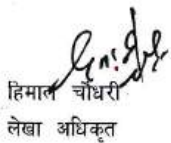 हिमाल चौधरी
लेखा अधिकृत